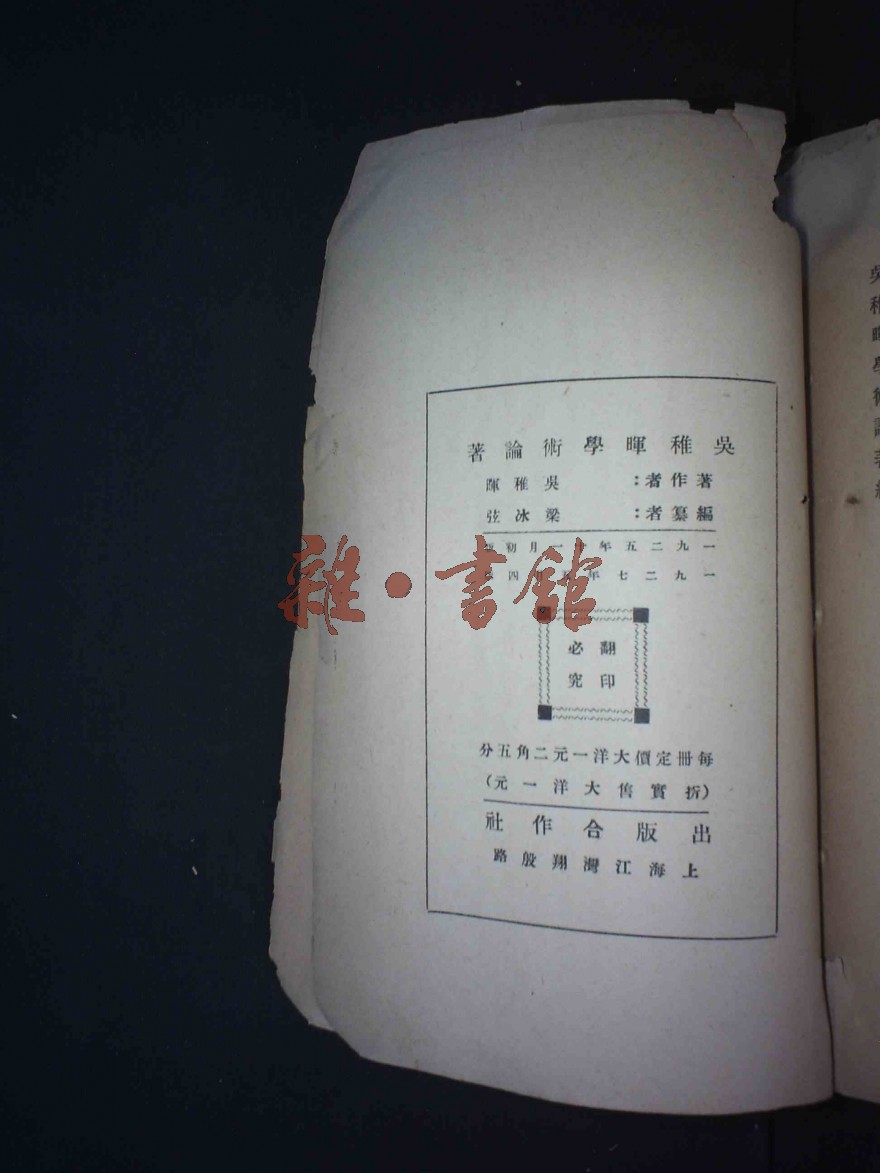 吳稚暉學術論著
著作者：吳稚暉
編纂者：梁冰弦
一九二五年十一月初版
一九二七年五月四版
翻印
必究
每冊定價大洋一元二角五分
（折實售大洋一元）
出版合作社
上海江灣翔殷路
雜·書館
吳稚暉學術論著